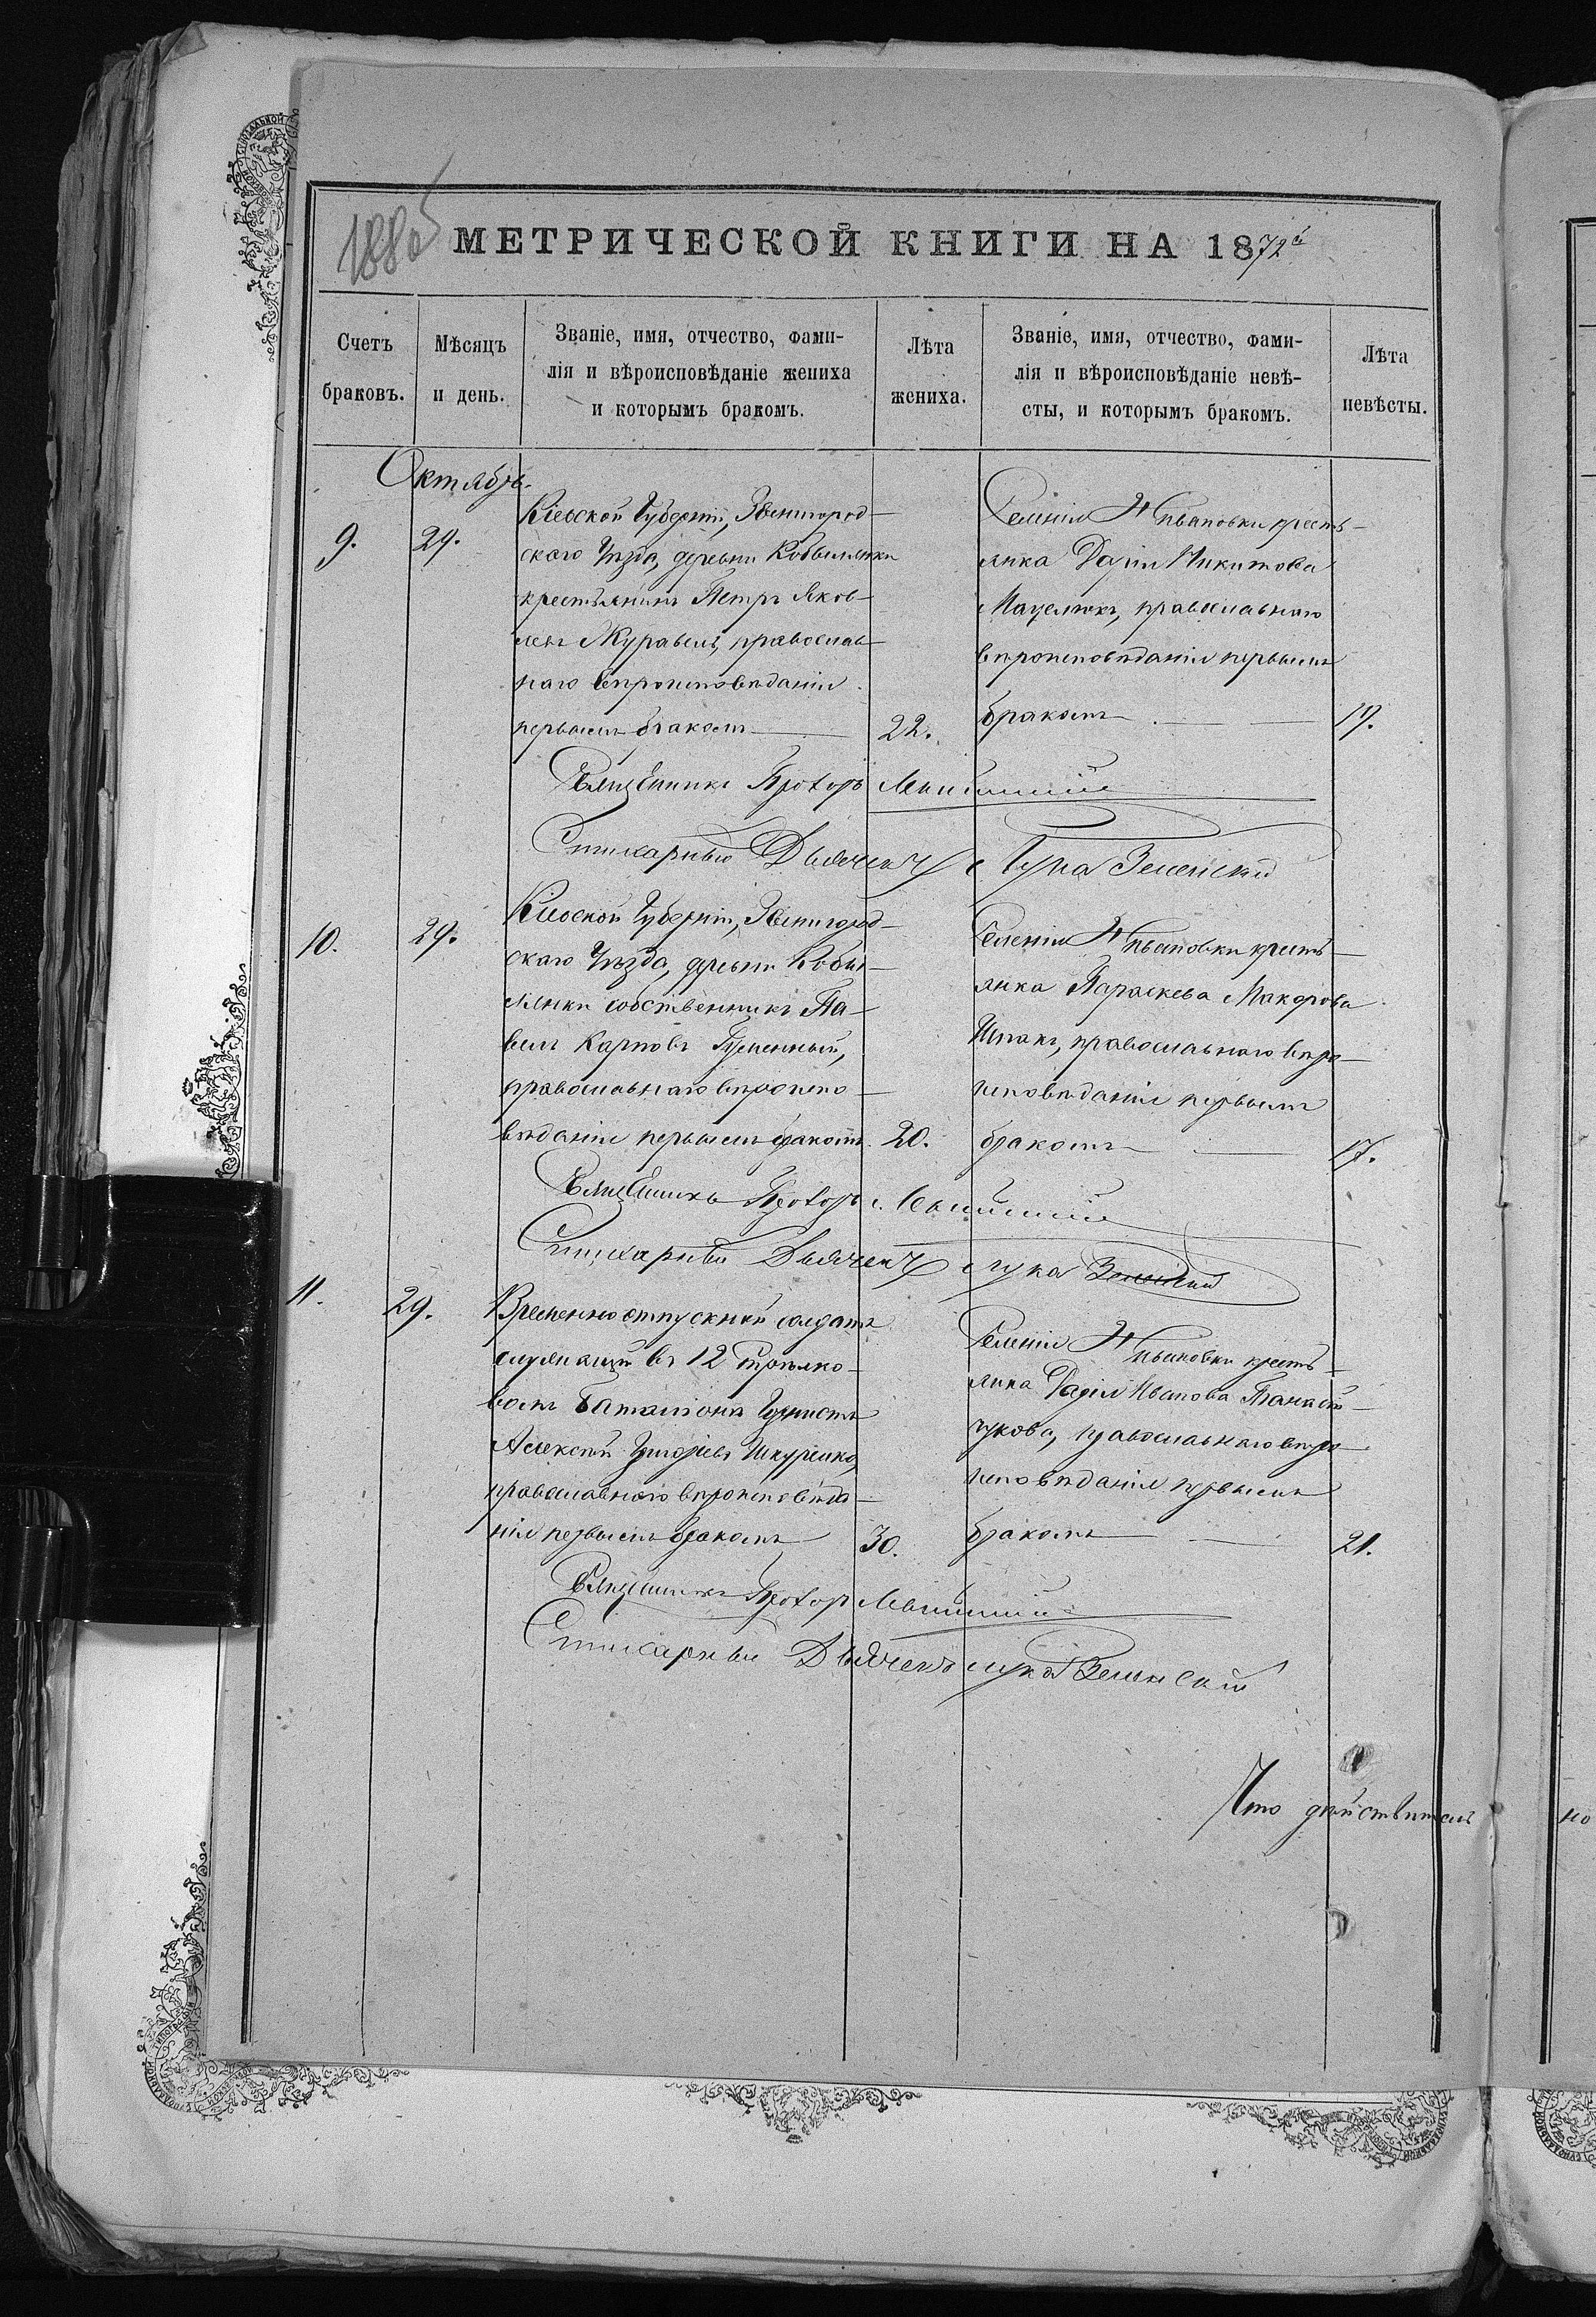 1880
МЕТРИЧЕСКОЙ КНИГИ НА 1872й
Счетъ браковъ.
Мѣсяцъ и день.
Званіе, имя, отчество, фами-
лія и вѣроисповѣданіе жениха
и которымъ бракомъ.
Лѣта жениха.
Званіе, имя, отчество, фами-
лія и вѣроисповѣданіе невѣ-
сты, и которымъ бракомъ.
Лѣта невѣсты.
Октябрь.
9.
29.
Кіевской Губерніи, Звенигород-
скаго Уѣзда, деревни Кобылянки
крестьянинъ Петръ Яков-
левъ Журавель, православ-
наго вѣроисповѣданія
первымъ бракомъ
22.
Селенія пановки кресть-
янка Дарія Никитова
Мацелюкъ, православнаго
вѣроисповѣданія первымъ
бракомъ
19.
Священникъ Прохоръ
Стихарный Дьячекъ Лука Зеленскій
10.
29.
Кіевской Губерніи, Звенигород-
скаго Уѣзда, деревни Кобы-
лянки собственникъ Па-
велъ Карповъ
православнаго вѣроиспо-
вѣданія первымъ бракомъ
20.
Селенія пановки кресть-
янка Параскева Макарова
Шпакъ, православнаго вѣро-
исповѣданія первымъ
бракомъ
17.
Священникъ Прохоръ
Стихарный Дьячекъ Лука Зеленскій
11.
29.
Временно отпускной солдатъ
служащій въ 12 Стрѣлко-
вомъ Баталіонѣ Горнистъ
Алексѣй Григоріевъ Шкуренко,
православнаго вѣроисповѣда-
нія первымъ бракомъ
30.
Селенія пановки кресть-
янка Дарія Иванова Панась-
чукова, православнаго вѣро-
исповѣданія первымъ
бракомъ
21.
Священникъ Прохоръ
Стихарный Дьячекъ Лука Зеленскій
Что дѣйствитель
но